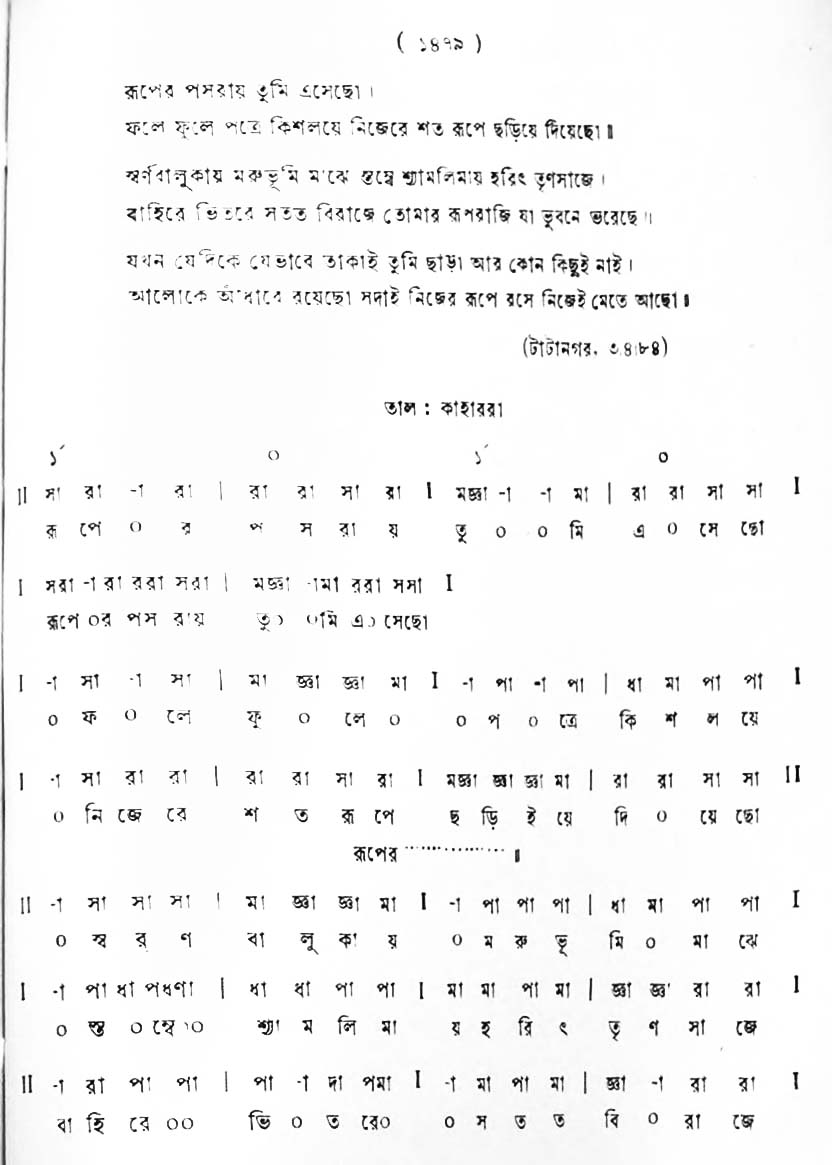 ( ১৪৭৯ )
রূপের পসরায় তুমি এসেছো ।
ফলে ফুলে পত্রে কিশলয়ে নিজেরে শত রূপে ছড়িয়ে দিয়েছো ॥
স্বর্ণবালুকায় মরুভূমি মাঝে স্তম্বে শ্যামলিমায় হরিৎ তৃণসাজে ।
বাহিরে ভিতরে সতত বিরাজে তোমার রূপরাজি যা ভুবনে ভরেছে ॥
যখন যেদিকে যেভাবে তাকাই তুমি ছাড়া আর কোন কিছুই নাই ।
আলোকে আঁধারে রয়েছো সদাই নিজের রূপে রসে নিজেই মেতে আছো ॥
(টাটানগর, ৩.৪.৮৪)
তাল : কাহাররা
১´ ০ ১´ ০
II সা রা -া রা | রা রা সা রা I মজ্ঞা -া -া মা | রা রা সা সা I
রূ পে ০ র প স রা য় তু ০ ০ মি এ ০ সে ছো
I সরা -া রা ররা সরা | মজ্ঞা -ামা ররা সসা I
রূপে ০র পস রায় তু০ ০মি এ০ সেছো
I -া সা -া সা | মা জ্ঞা জ্ঞা মা I -া পা -া পা | ধা মা পা পা I
০ ফ ০ লে ফু ০ লে ০ ০ প ০ ত্রে কি শ ল য়ে
I -া সা রা রা | রা রা সা রা I মজ্ঞা জ্ঞা জ্ঞা মা | রা রা সা সা II
০ নি জে রে শ ত রূ পে ছ ড়ি ই য়ে দি ০ য়ে ছো
রূপের ················ ॥
II -া সা সা সা | মা জ্ঞা জ্ঞা মা I -া পা পা পা | ধা মা পা পা I
০ স্ব র্ ণ বা লু কা য় ০ ম রু ভূ মি ০ মা ঝে
I -া পা ধা পধণা | ধা ধা পা পা I মা মা পা মা | জ্ঞা জ্ঞা রা রা I
০ স্ত ০ ম্বে ০০ শ্যা ম লি মা য় হ রি ৎ তৃ ণ সা জে
II -া রা পা পা | পা -া দা পমা I -া মা পা মা | জ্ঞা -া রা রা I
বা হি রে ০০ ভি ০ ত রে০ ০ স ত ত বি ০ রা জে